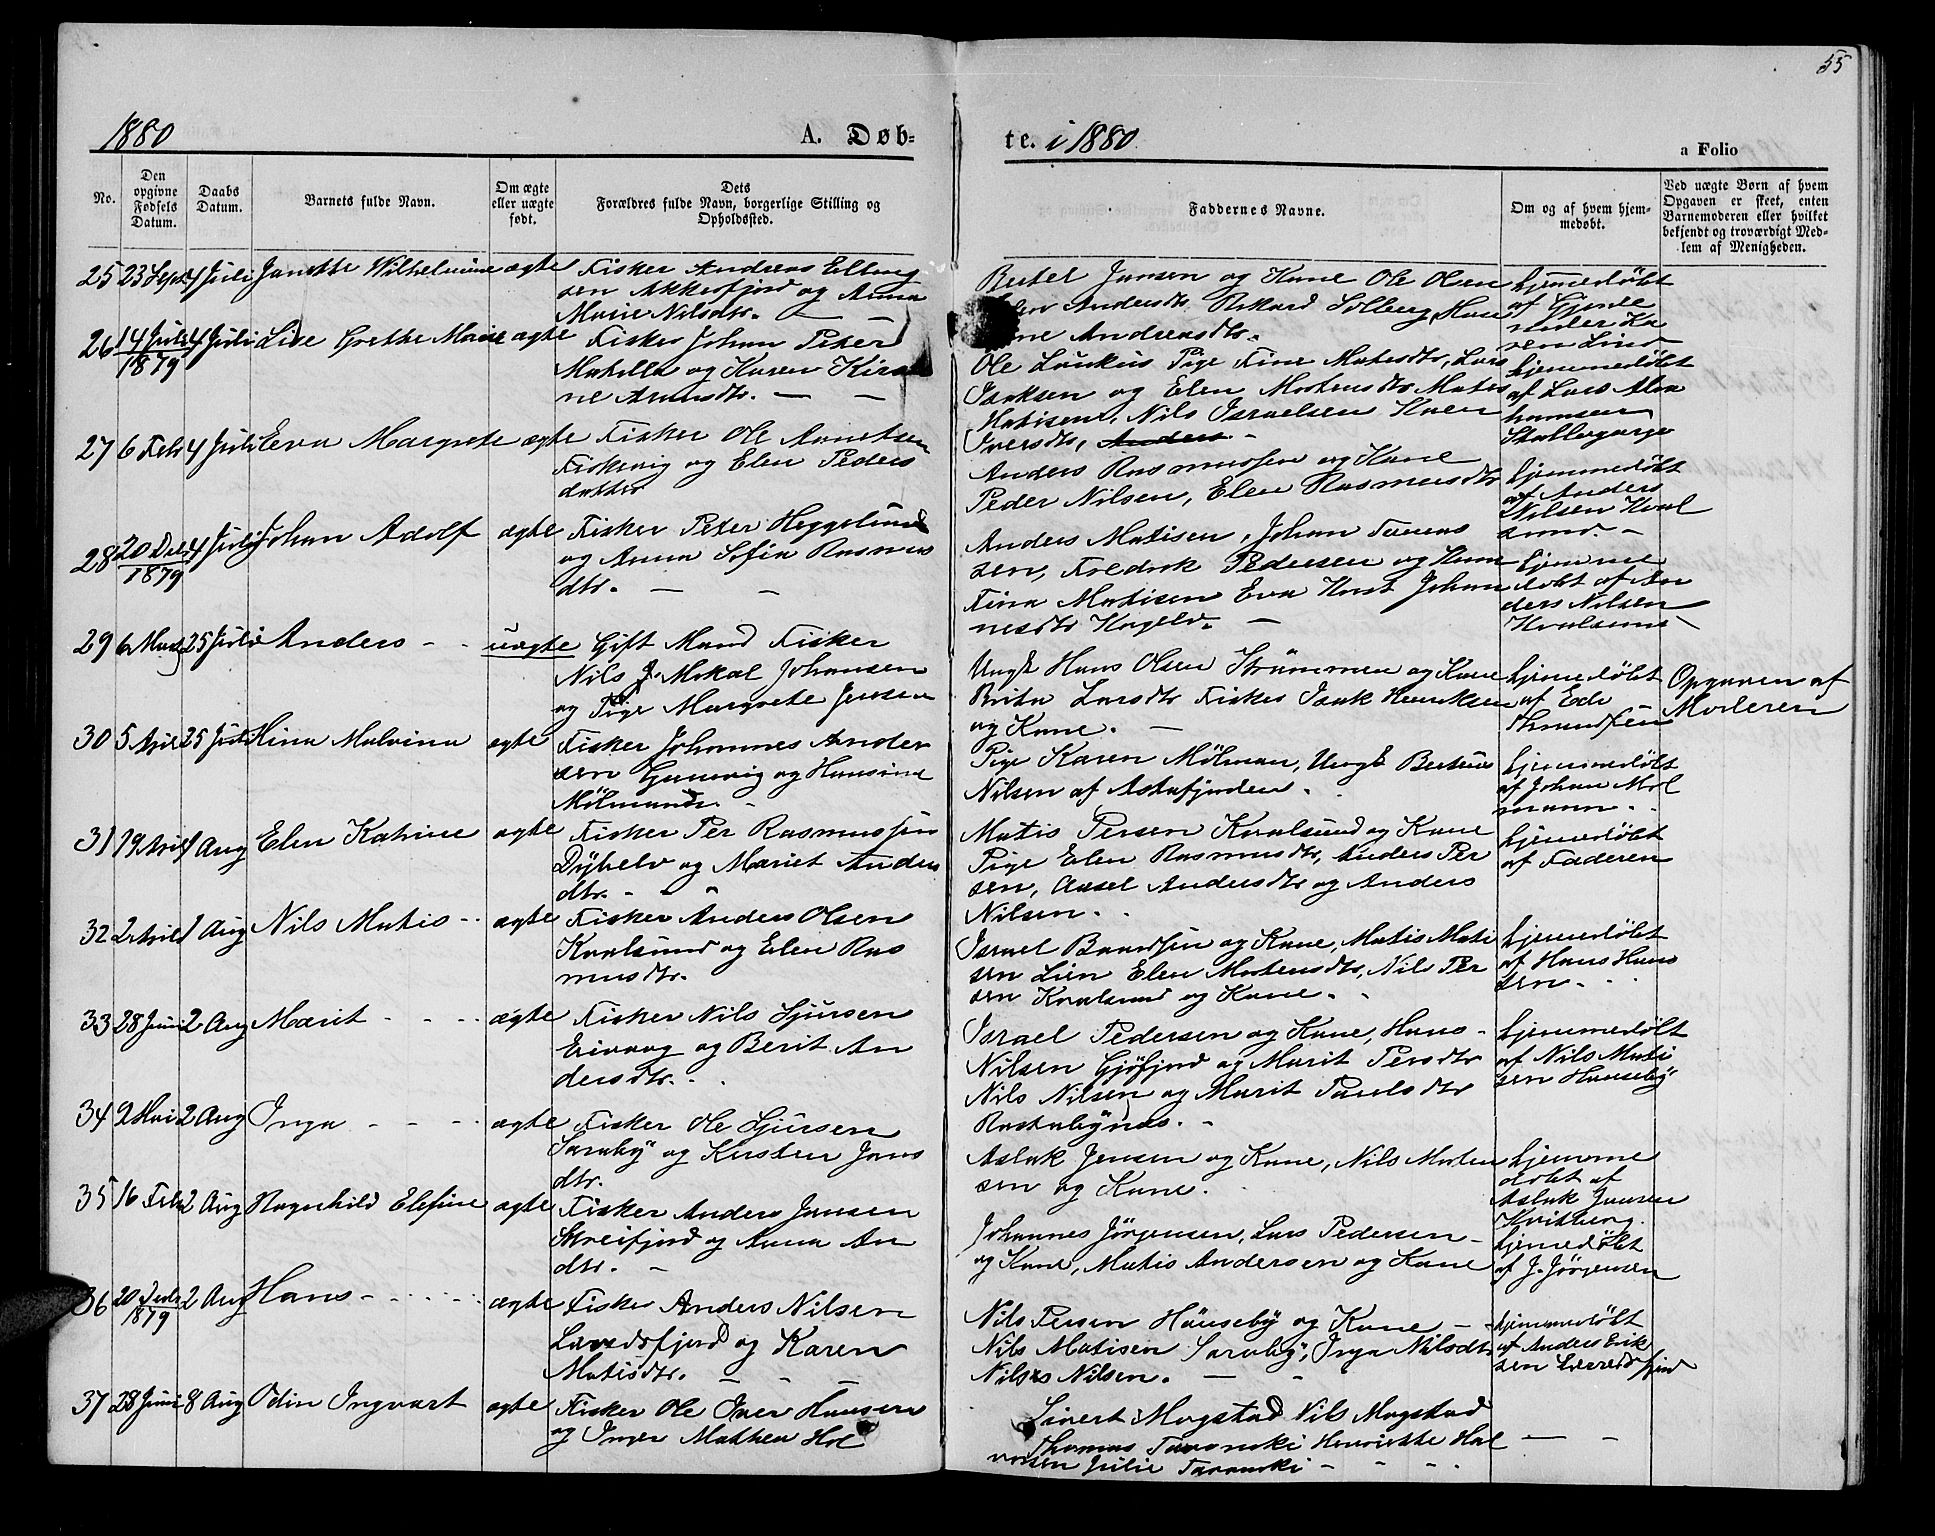 55
1880
A. Døb-
te. i 1880.
a Folio
No.
Den opgivne Fødsels Datum.
Daabs Datum.
Barnets fulde Navn.
Om ægte eller uægte født.
Dets
Forældres fulde Navn, borgerlige Stilling og Opholdssted.
Faddernes Navne.
Om og af hvem hjem-
medøbt.
Ved uægte Børn af hvem
Opgaven er skeet, enten
Barnemoderen eller hvilket
bekjendt og troværdigt Med-
lem af Menigheden.
25 23 4 Juli Janette Wilhelmine ægte Fisker Andreas Elling
sen Akkerfjord og Anna
Marie Nilsdtr. — —
Jansen og Kone Ole Olsen
Andersdtr Rikard Solberg
Andreasdtr.
hjemmedøbt
af
26 14 Juli 1879 4 Juli Lise Grethe Marie ægte Fisker Johan Peter
Mathilla og Karen
ne
Ole Pige Fine Matisdtr, Lars
Isaksen og Elen Mortensdtr Matis
Matisen, Nils Israelsen
Iversdtr, Anders -
hjemmedøbt
af Lars Abra
hamsen
27 6 Feb 4 Juli Eva Margrete ægte Fisker Ole
Fiskevig og Elen Peders
datter
Anders Rasmussen og Kone
Peder Nilsen, Elen Rasmusdtr
hjemmedøbt
af Anders
Nilsen Kval
sund. -
28 20 1879 4 Juli Johan Adolf ægte Fisker Peter Heggelund
og Anna Sofia Rasmus
dtr. — —
Anders Matisen, Johan
sen, Fredrik Pedersen og
Fina Matisen Eva Johan
nesdtr —
hjemme
døbt af An
ders Nilsen
Kvalsund
29 6 25 Juli Anders - - uægte Gift Mand Fisker
Nils J. Mikal Johansen
og Pige Margrete Jensen
Ungk Hans Olsen Strömmen og Kone
Brita Larsdtr Fisker Isak Henriksen
og Kone. —
hjemmedøbt
af
Opgaven af
Moderen
30 5 April 25 Juli Hina Malvina ægte Fisker Johannes Ander
sen og Hansine
Mölmand. -
Pige Karen Mölman, Ungk
Nilsen af Astafjorden. .
hjemmedøbt
af Johan Möl
mann. .
31 19 April 1 Aug Elen Katrine ægte Fisker Per Rasmussen
Dybelv og Mariet Anders
dtr. -
Matis Persen Kvalsund og Kone
Pige Elen Rasmusdtr, Anders Per
sen, Andersdtr og Anders
Nilsen. .
hjemmedøbt
af Faderen
32 2 April 1 Aug Nils Matis - ægte Fisker Anders Olsen
Kvalsund og Elen Ras
musdtr.
Israel og Kone, Matis Mati
sen Lien Elen Mortensdtr, Nils Per
sen Kvalsund og Kone. .
hjemmedøbt
af Hans Hans
sen. .
33 28 Juni 2 Aug Marit - - - ægte Fisker Nils Sjursen
og Berit An
dersdtr. .
Israel Pedersen og Kone, Hans -
Nilsen og Marit Persdtr
Nils Nilsen og Marit Paulsdtr
hjemmedøbt
af Nils Mati
sen
34 9 Mai 2 Aug Inga - - - ægte Fisker Ole Sjursen
Saraby og Kirsten Jans
dtr.
Aslak Jensen og Kone, Nils Morten
sen og Kone.
hjemme
døbt af
Aslak Jansen
Kvitberg.
35 16 Feb 2 Aug Ragnhild Elefine ægte Fisker Anders Jansen
Skreifjord og Anna An
dtr. -
Johannes Jörgensen, Lars Pedersen -
og Kone, Matis Andersen og Kone
hjemmedøbt
af J. Jörgensen
36 20 1879 2 Aug Hans - ægte Fisker Anders Nilsen
og Karen
Matisdtr. — —
Nils Persen og Kone -
Nils Matisen Saraby, Inga Nilsdtr
Nils Nilsen. — -
hjemmedøbt
af Anders Erik
sen
37 28 Juni 8 Aug Odin Ingvart ægte Fisker Ole Iver Hansen
og Inger Mathea Hol
Sivert Mogstad Nils Mogstad
Thomas Henriette Hal
vorsen Julie - - - .
— -